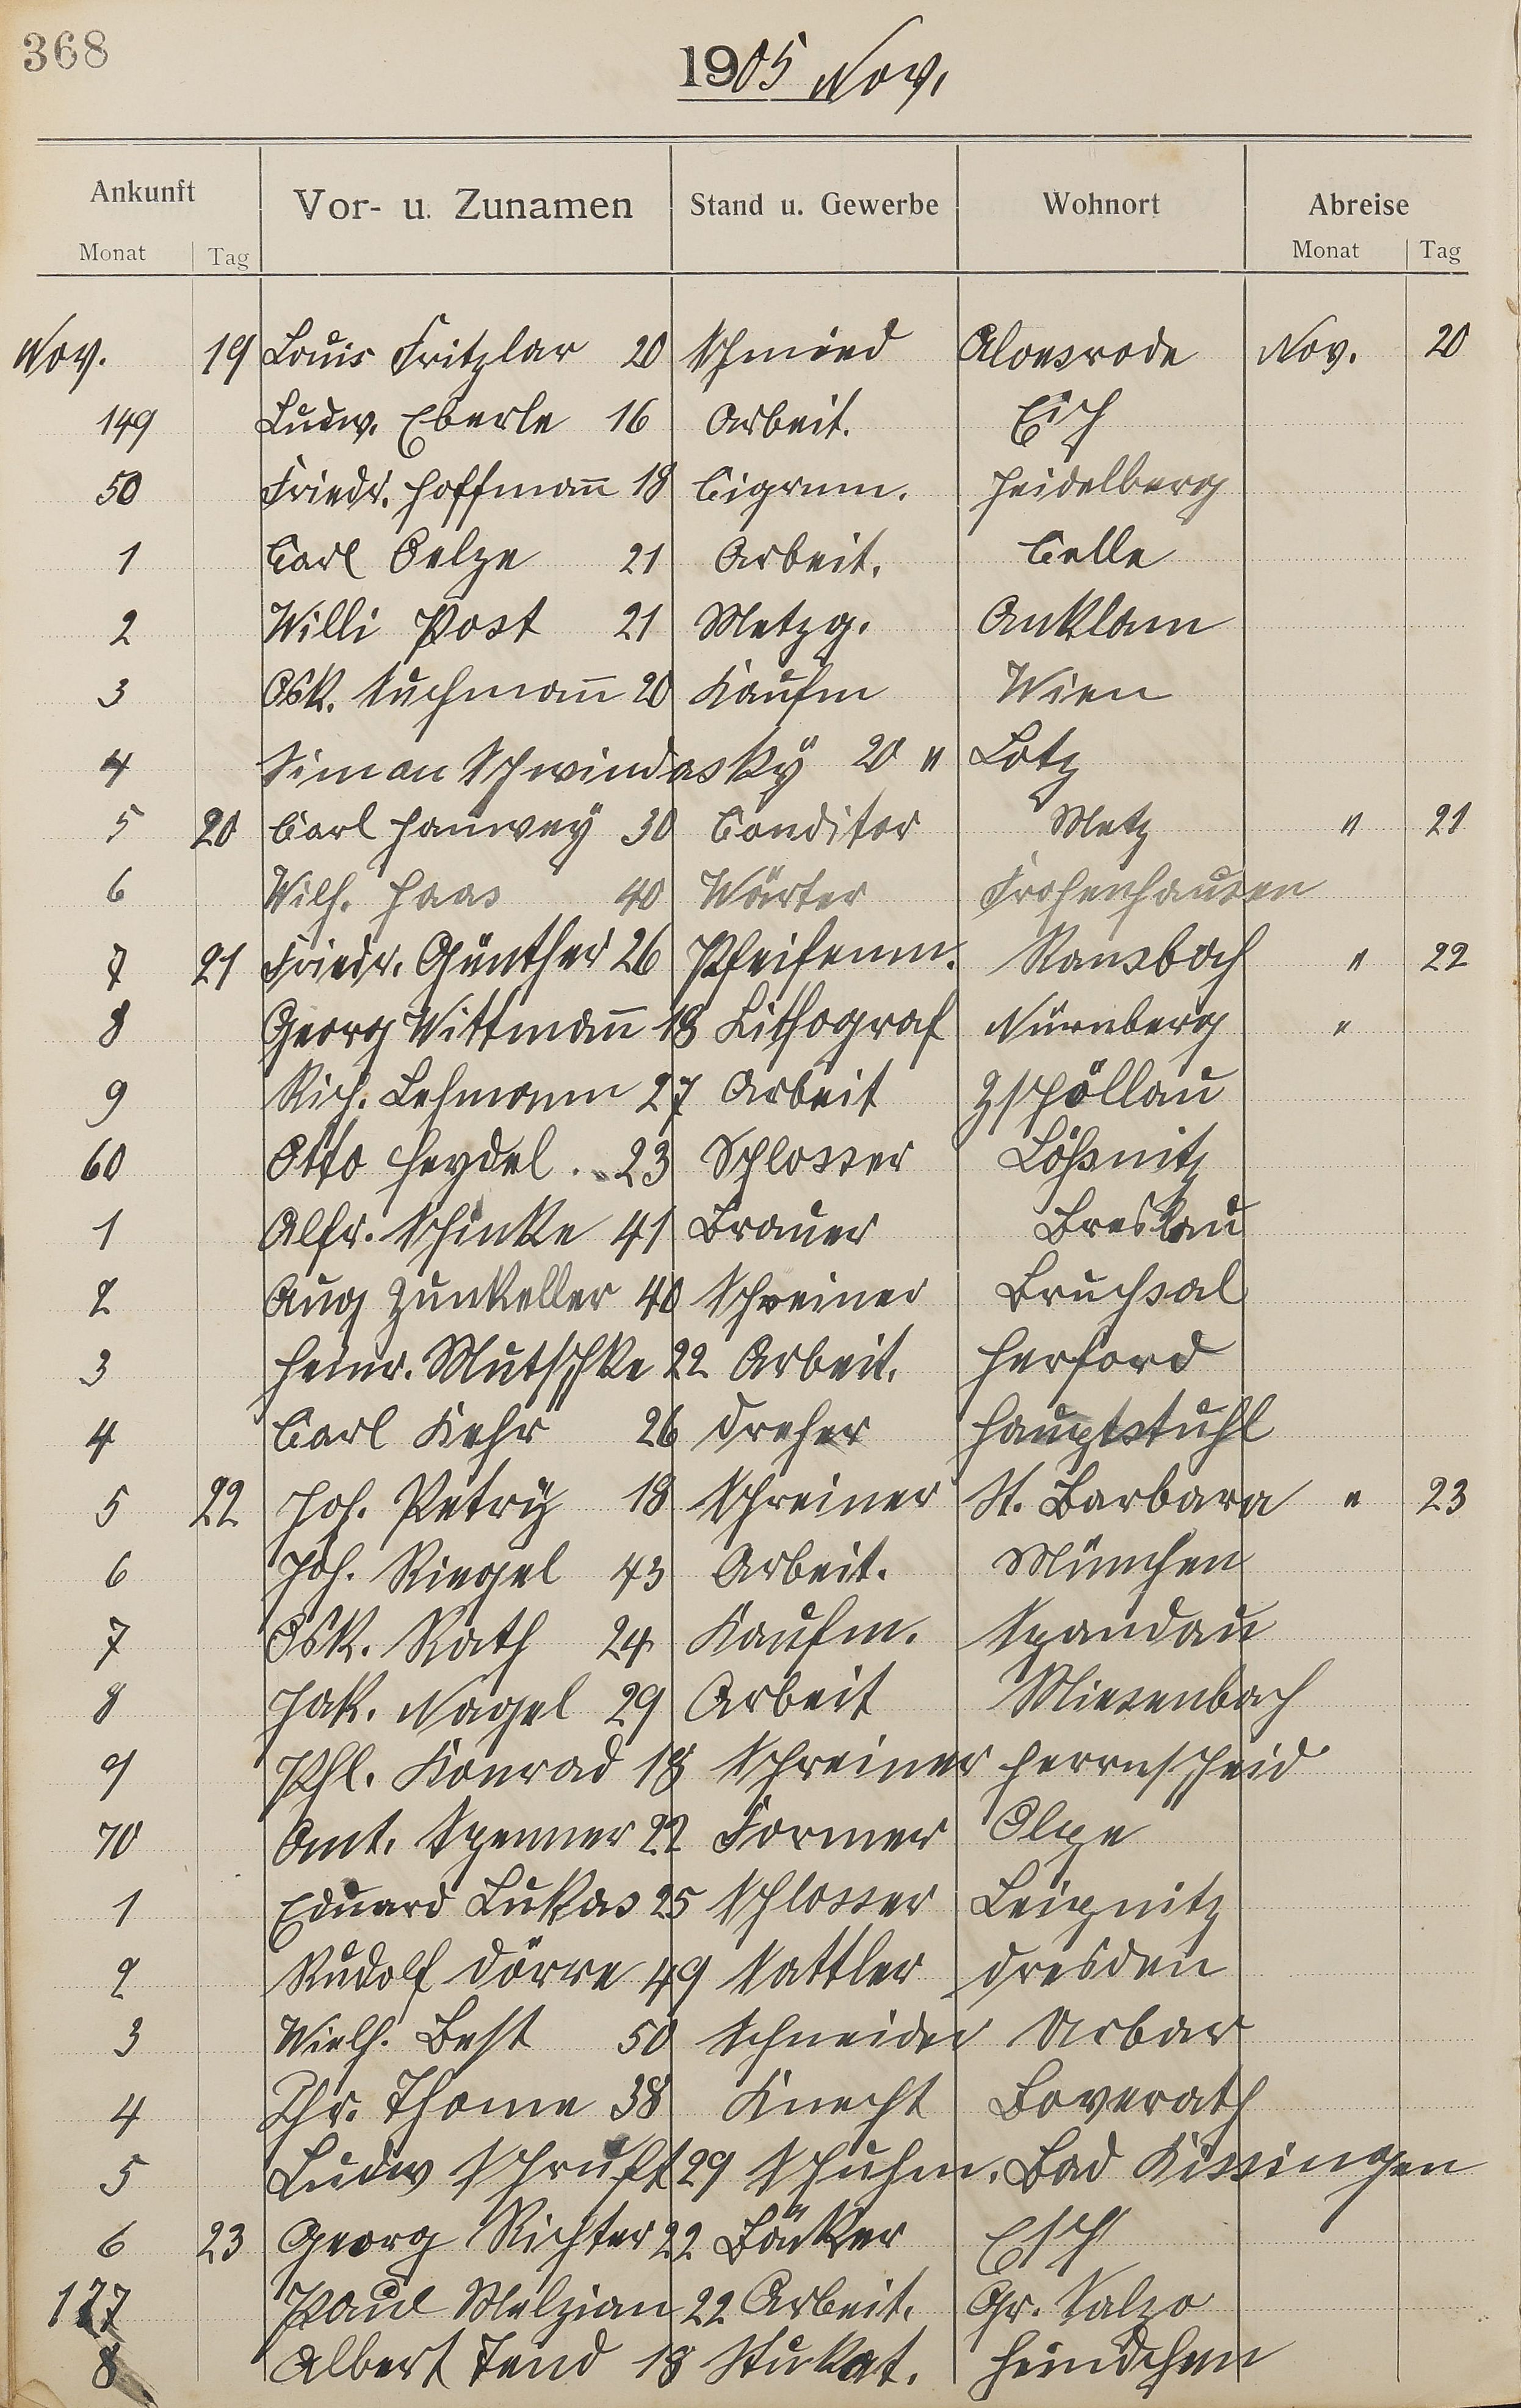 368
1905 Nov.
Ankunft Vor- u. Zunamen Stand u. Gewerbe Wohnort Abreise
Monat Tag Monat Tag
Nov. 19 Louis Fritzlar 20 Schmied Nov. 20
149 Ludw. Eberle 16 Arbeit. Eich
50 Friedr. Hoffmann 18 Cigrnm. Heidelberg
1 Carl Oelze 21 Arbeit. Celle
2 Willi Post 21 Metzg. Anklam
3 Osk. Suchmann 20 Kaufm Wien
4 Simon Schwindasky 20 " Lotz
5 20 Carl Hanwey 30 Conditor Metz " 21
6 Wilh. Haas 40 Wärter Frohenhausen
7 21 Friedr. Günther 26 Pfeifenm. Ransbach " 22
8 Georg Wittmann 18 Lithograf Nürnberg "
9 Rich. Lehmann 27 Arbeit Zschöllau
60 Otto Heydel 23 Schlosser Lößnitz
1 Alfr. Schinke 41 Brauer Breslau
2 Aug Zunkeller 40 Schreiner Bruchsal
3 Heinr. Mutschke 22 Arbeit. Herford
4 Carl Kehr 26 Dreher Hauptstuhl
5 22 Joh. Petry 18 Schreiner St. Barbara " 23
6 Joh. Riegel 43 Arbeit. München
7 Osk. Rath 24 Kaufm. Spandau
8 Jak. Nagel 29 Arbeit Miesenbach
9 Phl. Konrad 18 Schreiner Herrnscheid
70 Ant. Spenner 22 Former Olpe
1 Eduard Lukas 25 Schlosser Leignitz
2 Rudolf Dörre 49 Sattler Dresden
3 Wielh. Best 50 Schneider Urbar
4 Chr. Thome 38 Knecht Boverath
5 Ludw Schruft 29 Schuhm. Bad Kissingen
6 23 Georg Richter 22 Bäcker Esch
177 Paul Melzian 22 Arbeit. Gr. Salze
8 Albert Tend 18 Stukat.